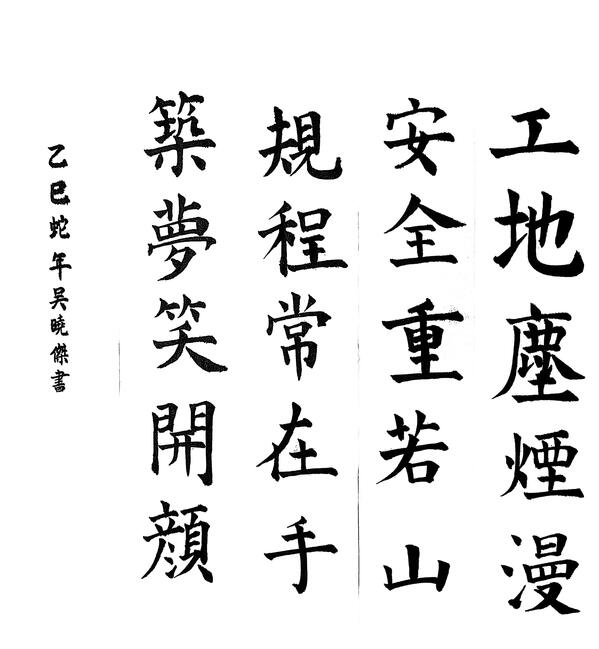 工地塵煙漫
安全重若山
規程常在手
築夢笑開顔
乙巳蛇年吳曉傑書